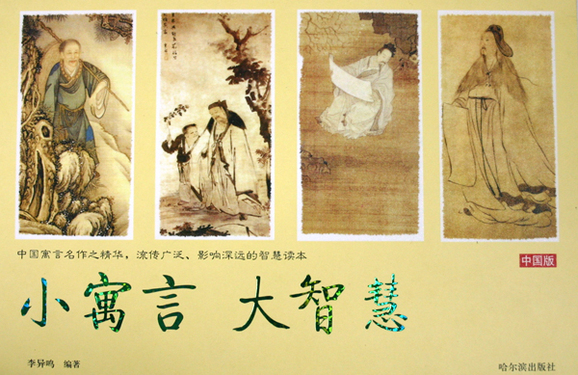 中国寓言名作之精华，流传广泛、影响深远的智慧读本
中国版
小寓言 大智慧
李异鸣 编著
哈尔滨出版社